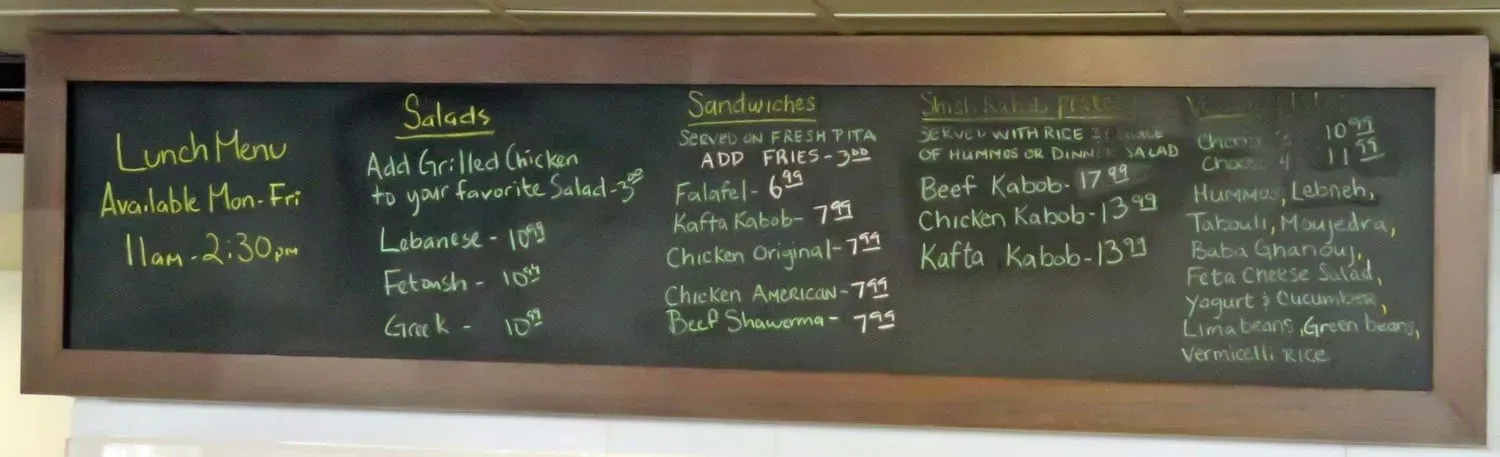 Lunch Menu
Available Mon-Fri
11am - 2:30pm
Salads
Add Grilled Chicken
to your favorite Salad - 3.00
Lebanese - 10 99
Fetoush - 10 99
Greek - 10 99
Sandwiches
SERVED ON FRESH PITA
ADD FRIES - 3 00
Falafel - 6 99
Kafta Kabob - 7 99
Chicken Original - 7 99
Chicken AMERICAN - 7 99
Beef Shawerma - 7 99
Shish Kabob Plate
SERVED WITH RICE
OF HUMMOS OR DINNER SALAD
Beef Kabob - 17 99
Chicken Kabob - 13 99
Kafta Kabob - 13 99
10 99
4 11 99
HUMMOS, Lebneh,
Tabouli, Moujedra,
Baba Ghanouj,
Feta Cheese Salad,
Yogurt & Cucumber,
Lima beans, Green beans,
Vermicelli RICE